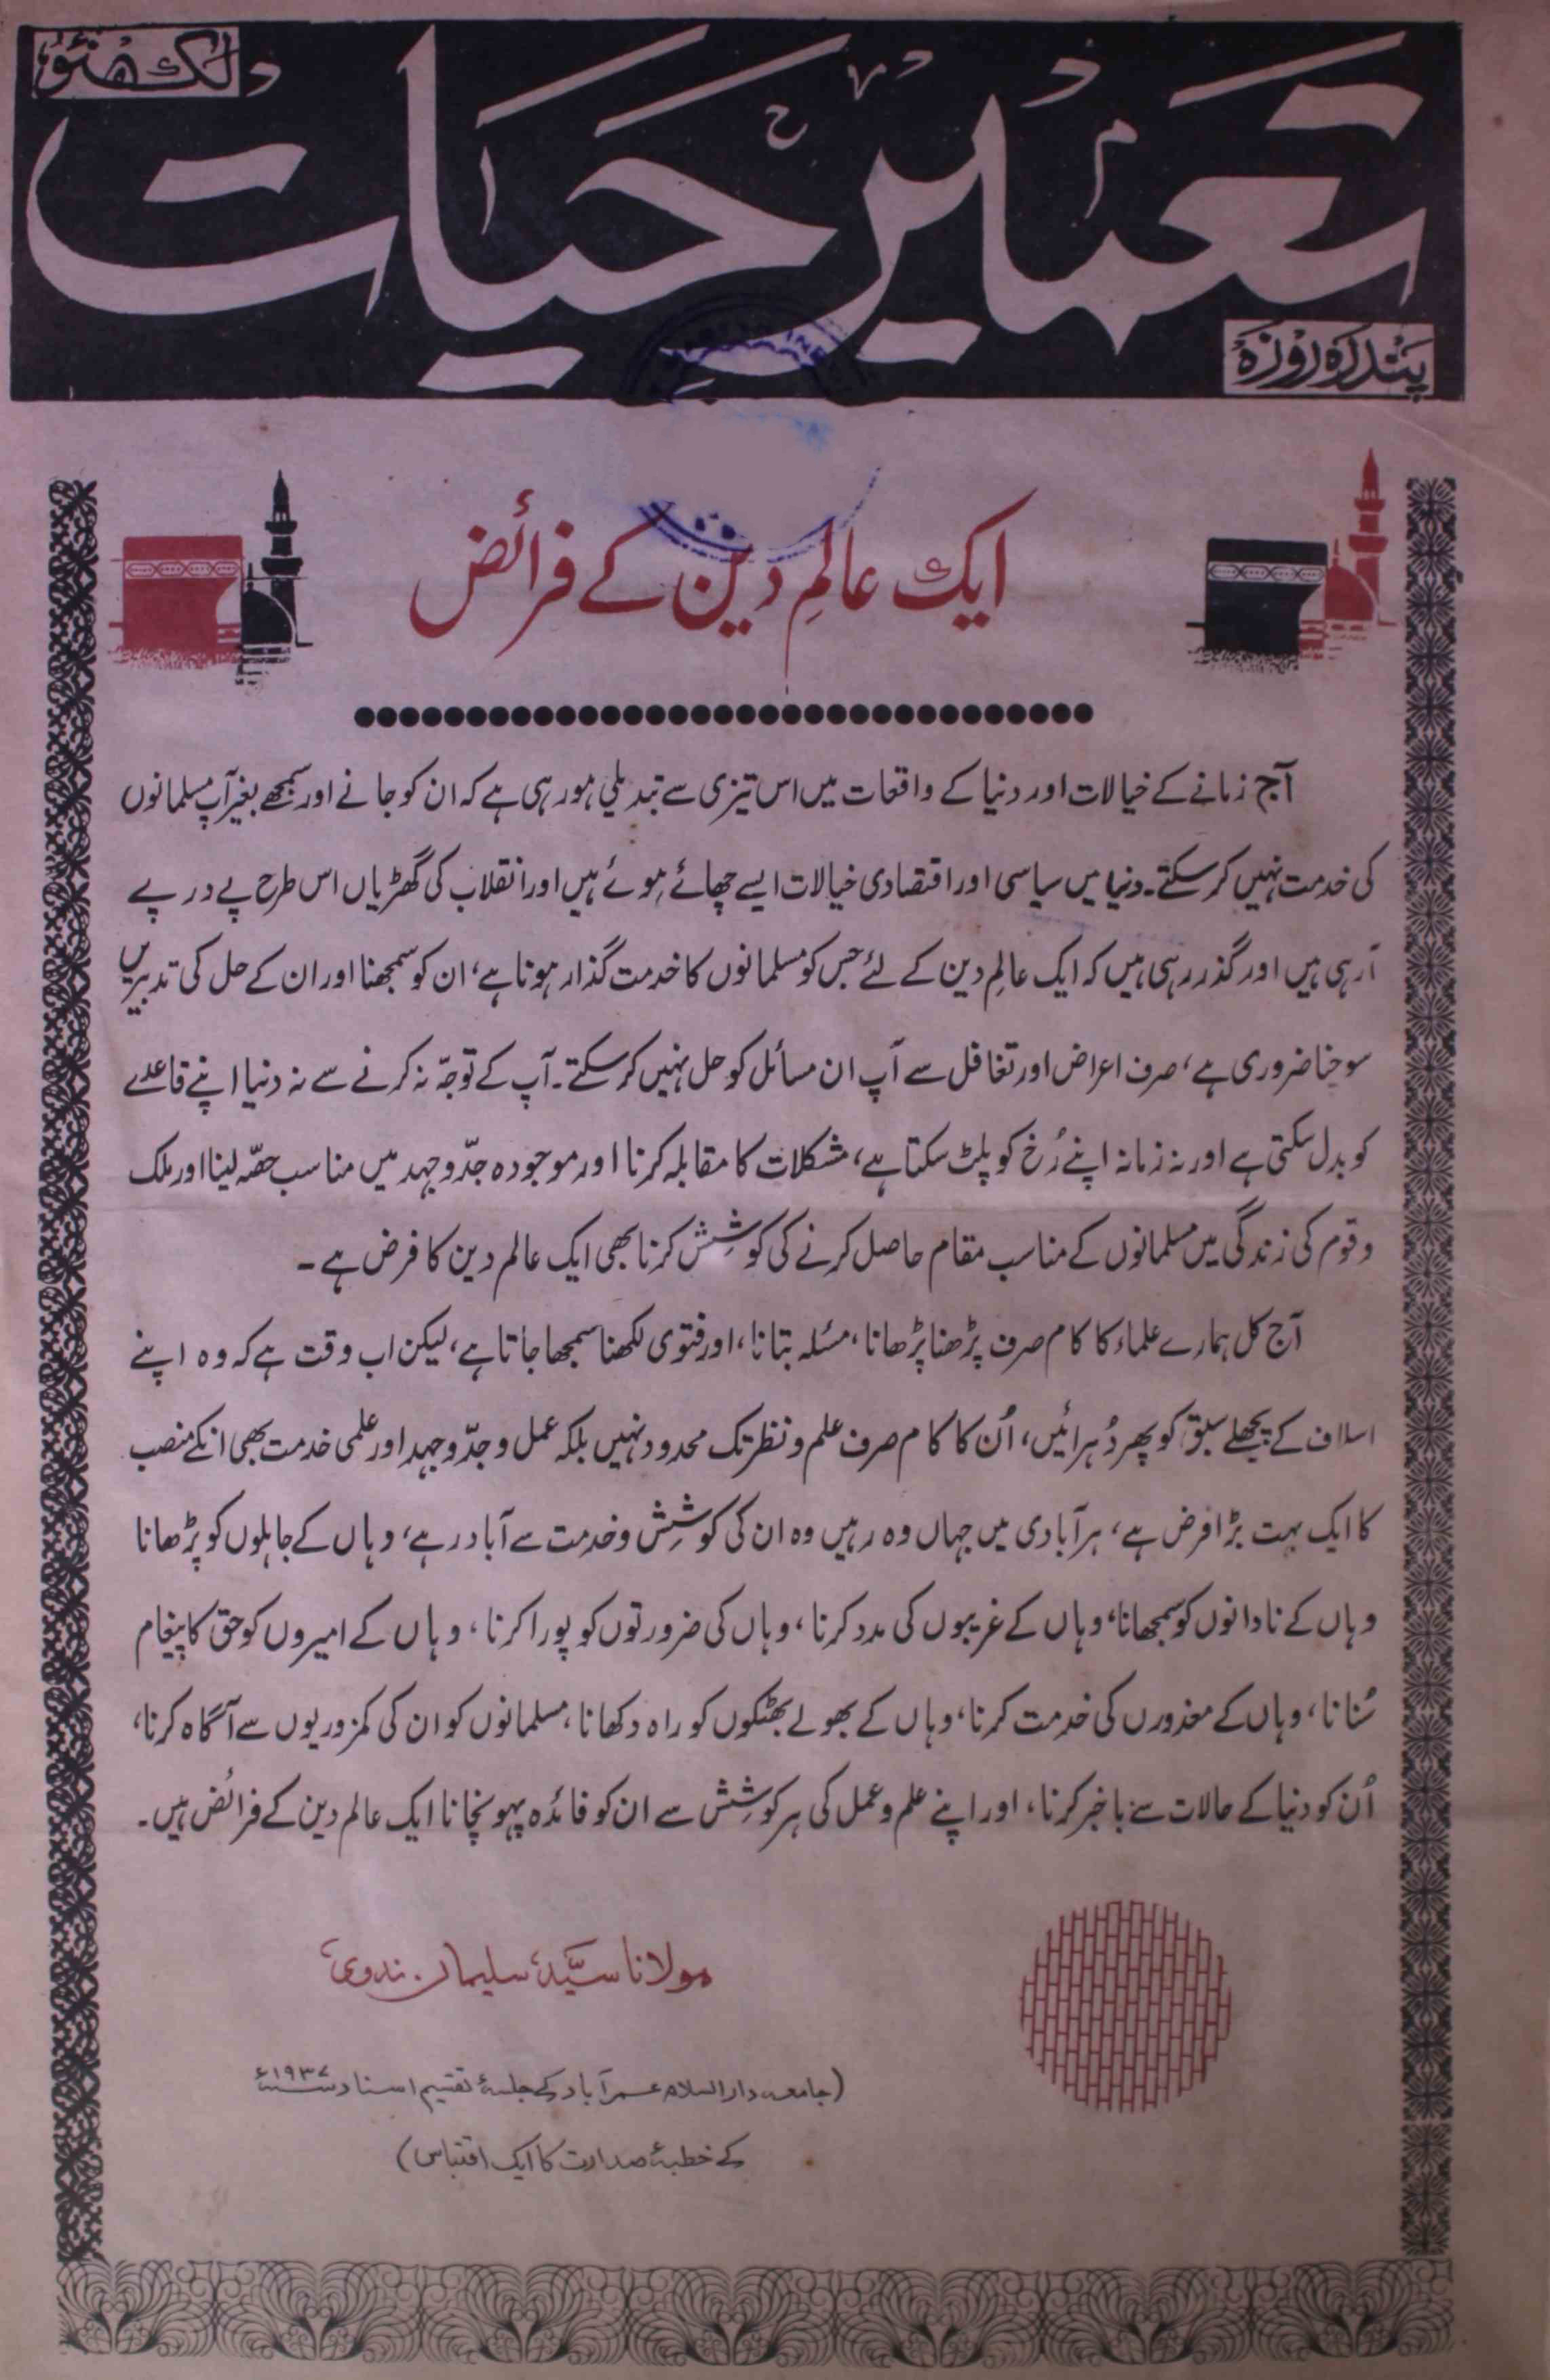 لکھنؤ
تعمیر حیات
پندرہ روزہ
ایک عالمِ دین کے فرائض
آج زمانے کے خیالات اور دنیا کے واقعات میں اس تیزی سے تبدیلی ہو رہی ہے کہ ان کو جانے اور سمجھے بغیر آپ مسلمانوں
کی خدمت نہیں کر سکتے۔ دنیا میں سیاسی اور اقتصادی خیالات ایسے چھائے ہوئے ہیں اور انقلاب کی گھڑیاں اس طرح پے در پے
آرہی ہیں اور گذر رہی ہیں کہ ایک عالمِ دین کے لئے جس کو مسلمانوں کا خدمت گذار ہونا ہے، ان کو سمجھنا اور ان کے حل کی تدبیریں
سوچنا ضروری ہے، صرف اعراض اور تغافل سے آپ ان مسائل کو حل نہیں کر سکتے۔ آپ کے توجّہ نہ کرنے سے نہ دنیا اپنے قاعدے
کو بدل سکتی ہے اور نہ زمانہ اپنے رُخ کو پلٹ سکتا ہے، مشکلات کا مقابلہ کرنا اور موجودہ جدّ وجہد میں مناسب حصّہ لینا اور ملک
وقوم کی زندگی میں مسلمانوں کے مناسب مقام حاصل کرنے کی کوشِش کرنا بھی ایک عالم دین کا فرض ہے۔
آج کل ہمارے علماء کا کام صرف پڑھنا پڑھانا، مسئلہ بتانا، اور فتوی لکھنا سمجھا جاتا ہے، لیکن اب وقت ہے کہ وہ اپنے
اسلاف کے پچھلے سبق کو پھر دُہرائیں، اُن کا کام صرف علم و نظر تک محدود نہیں بلکہ عمل و جدّ وجہد اور علمی خدمت بھی انکے منصب
کا ایک بہت بڑا فرض ہے، ہر آبادی میں جہاں وہ رہیں وہ ان کی کوشِش وخدمت سے آباد رہے، وہاں کے جاہلوں کو پڑھانا
وہاں کے نادانوں کو سمجھانا، وہاں کے غریبوں کی مدد کرنا، وہاں کی ضرورتوں کو پورا کرنا، وہاں کے امیروں کو حق کا پیغام
سُنانا، وہاں کے معذورں کی خدمت کرنا، وہاں کے بھولے بھٹکوں کو راہ دکھانا، مسلمانوں کو ان کی کمزوریوں سے آگاہ کرنا،
اُن کو دنیا کے حالات سے باخبر کرنا، اور اپنے علم و عمل کی ہر کوشِش سے ان کو فائدہ پہونچانا ایک عالم دین کے فرائض ہیں۔
مولانا سیّد سلیمان ندوی
(جامعہ دارالسلام عمرآباد کے جلسۂ تقسیم اسناد ۱۹۳۷ء
کے خطبۂ صدارت کا ایک اقتباس)